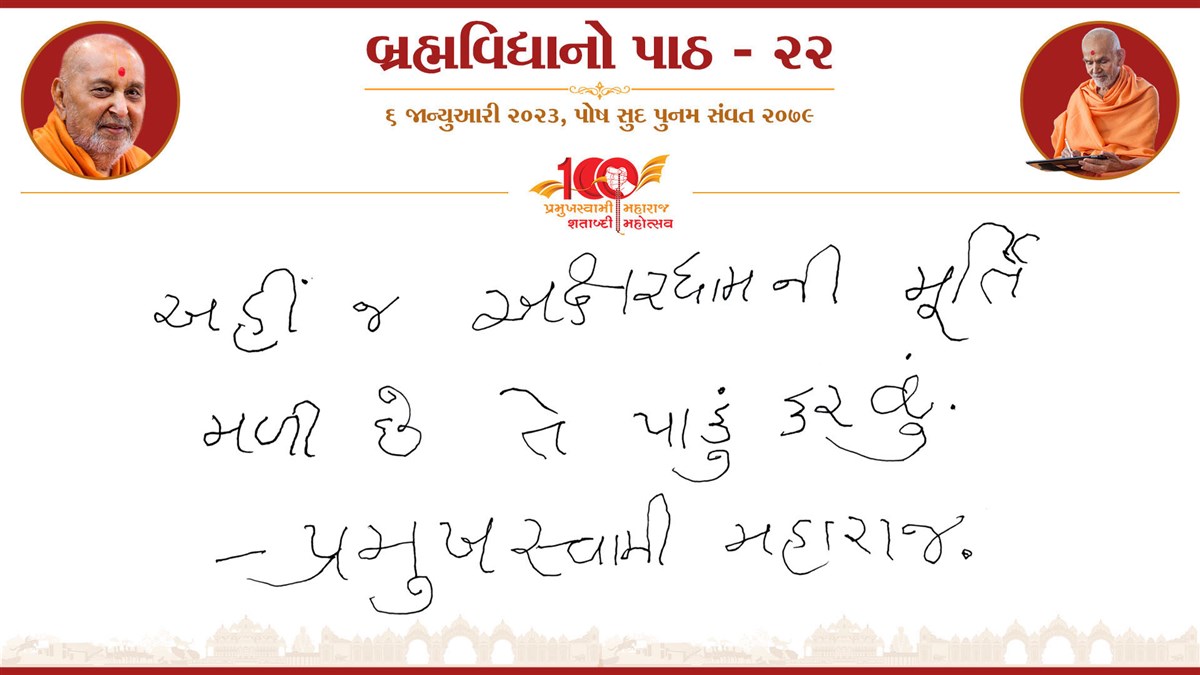 બ્રહ્મવિદ્યાનો પાઠ - ૨૨
૬ જાન્યુઆરી ૨૦૨૩, પોષ સુદ પુનમ સંવત ૨૦૭૯
100
પ્રમુખસ્વામી મહારાજ
શતાબ્દી મહોત્સવ
અહીં જ અક્ષરધામની મૂર્તિ
મળી છે તે પાકું કરવું.
- પ્રમુખસ્વામી મહારાજ.